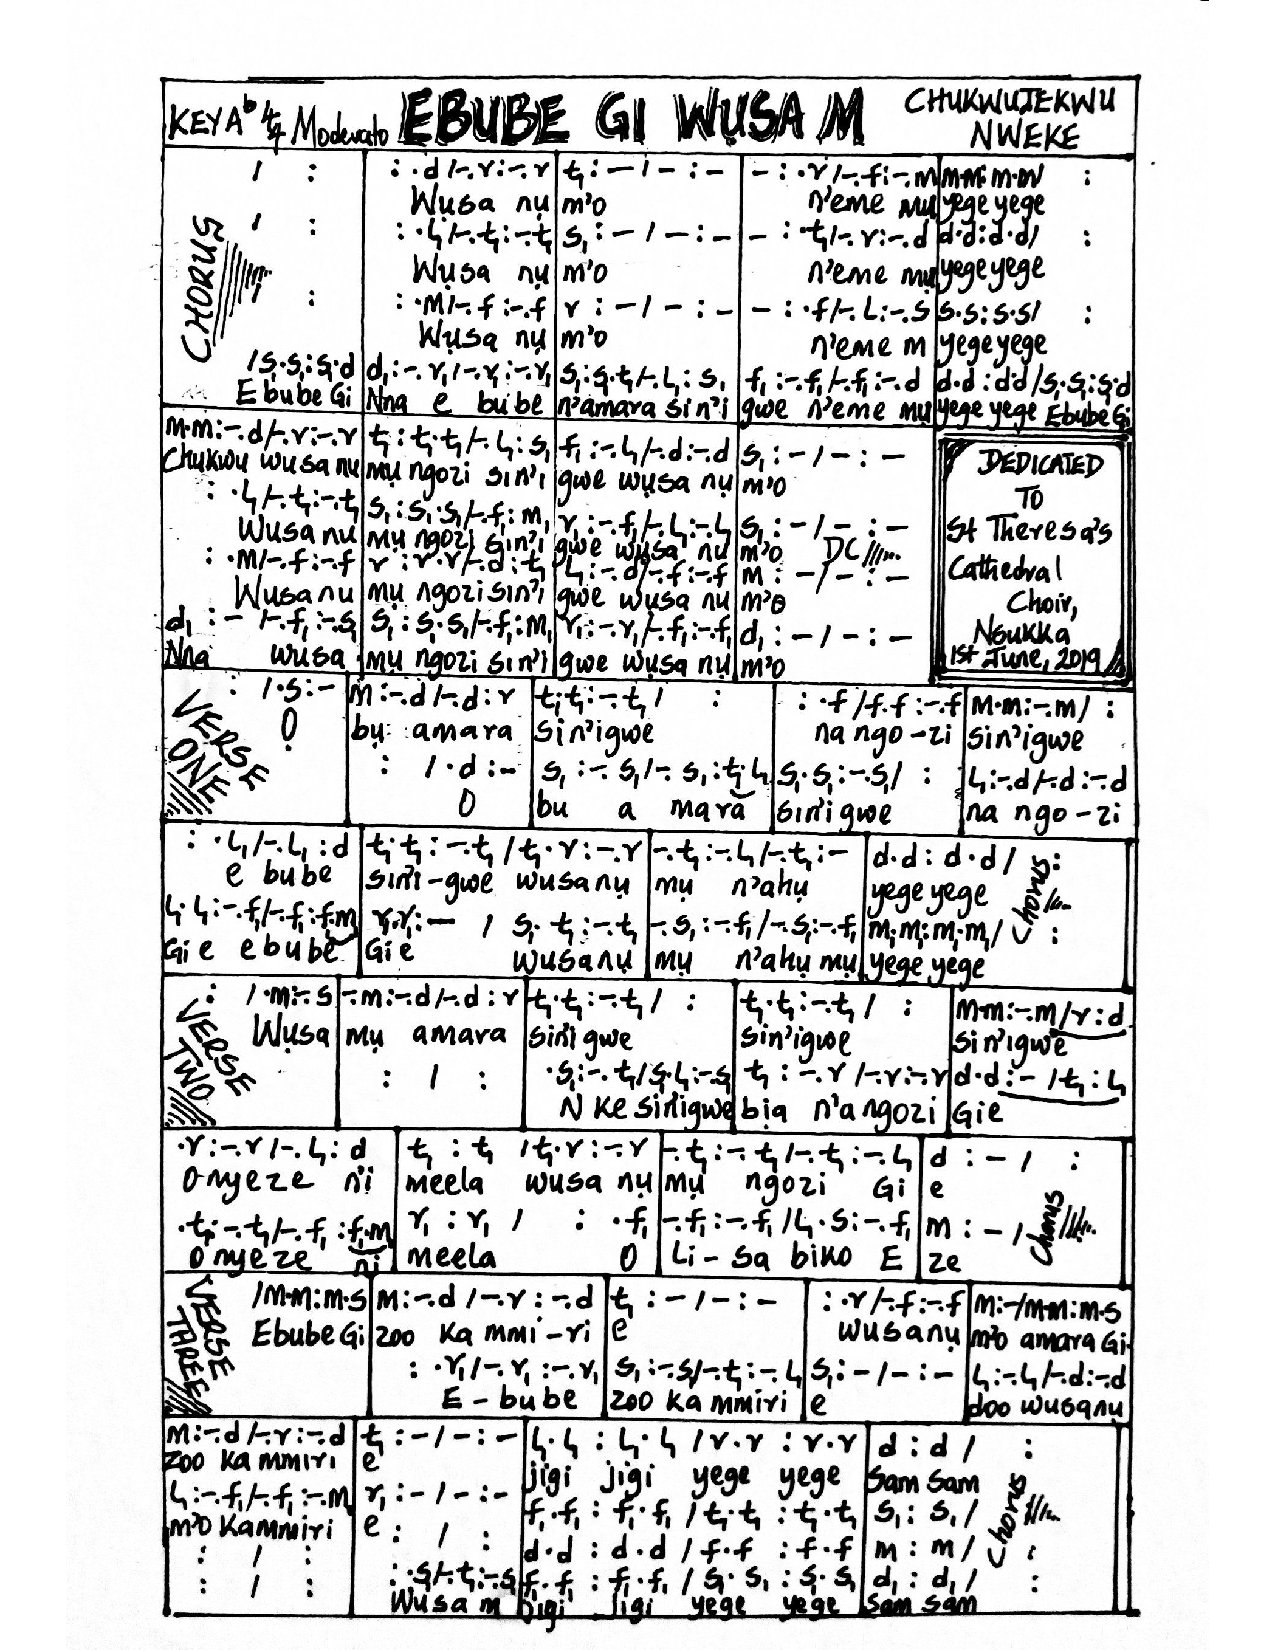 KEY A♭ 4/4 Moderato EBUBE GI WỤSA M CHUKWUJEKWU NWEKE
CHORUS
/ : | : ·d /-·r:-·r | t₁ : - / - : - | - : ·r /-·f:-·m | m·m: m·m/ :
Wụsa nụ m'o n'eme mụ yege yege
/ : | : ·l₁/-·t₁:-·t₁ | s₁ : - / - : - | - : ·t₁/-·r:-·d | d·d:d·d/ :
Wụsa nụ m'o n'eme mụ yege yege
/ : | : ·m/-·f:-·f | r : - / - : - | - : ·f/-·l:-·s | s·s:s·s/ :
Wụsa nụ m'o n'eme m yege yege
/s₁·s₁:s₁·d | d₁:-·r₁/-·r₁:-·r₁ | s₁:s₁·t₁/-·l₁:s₁ | f₁:-·f₁/-·f₁:-·d | d·d:d·d/s₁·s₁:s₁·d
Ebube Gi Nna e bube n'amara sin'i gwe n'eme mụ yege yege Ebube Gi
m·m:-·d/-·r:-·r | t₁:t₁·t₁/-·l₁:s₁ | f₁:-·l₁/-·d:-·d | s₁:-/-:-
Chukwu wusa nu mụ ngozi sin'i gwe wụsa nụ m'o
: ·l₁/-·t₁:-·t₁ | s₁:s₁·s₁/-·f₁:m₁ | r₁:-·f₁/-·l₁:-·l₁ | s₁:-/-:-
Wusa nu mụ ngozi sin'i gwe wusa nu m'o DC
: ·m/-·f:-·f | r:r·r/-·d:t₁ | l₁:-·d/-·f:-·f | m:-/-:-
Wusa nu mụ ngozi sin'i gwe wusa nu m'o
d₁:-/-·f₁:-·s₁ | s₁:s₁·s₁/-·f₁:m₁ | r₁:-·r₁/-·f₁:-·f₁ | d₁:-/-:-
Nna wusa mụ ngozi sin'i gwe wụsa nụ m'o
DEDICATED
TO
St Theresa's
Cathedral
Choir,
Nsukka
1st June, 2019
VERSE ONE
: /·s:- | m:-·d/-·d:r | t₁·t₁:-·t₁/ : | : ·f/f·f:-·f | m·m:-·m/ :
Ọ bụ amara sin'igwe na ngo-zi sin'igwe
: /·d:- | s₁:-·s₁/-·s₁:t₁·l₁ | s₁·s₁:-·s₁/ : | l₁:-·d/-·d:-·d
O bu a mara sin'igwe na ngo-zi
: ·l₁/-·l₁:d | t₁·t₁:-·t₁/t₁·r:-·r | -·t₁:-·l₁/-·t₁:- | d·d:d·d/ :
e bube sin'i-gwe wusa nụ mụ n'ahụ yege yege Chorus
l₁·l₁:-·f₁/-·f₁:f₁·m₁ | r₁·r₁:- / s₁·t₁:-·t₁ | -·s₁:-·f₁/-·s₁:-·f₁ | m₁·m₁:m₁·m₁/ :
Gi e ebube Gi e wusa nụ mụ n'ahụ mụ yege yege
VERSE TWO
: /·m:-·s | -·m:-·d/-·d:r | t₁·t₁:-·t₁/ : | t₁·t₁:-·t₁/ : | m·m:-·m/r:d
Wụsa mụ amara sin'igwe sin'igwe sin'igwe
: / : | ·s₁:-·t₁/s₁·l₁:-·s₁ | t₁:-·r/-·r:-·r | d·d:-/t₁:l₁
N Ke sin'igwe bịa n'a ngozi Gi e
·r:-·r/-·l₁:d | t₁:t₁/t₁·r:-·r | -·t₁:-·t₁/-·t₁:-·l₁ | d:-/ :
O nyeze n'i meela wusa nụ mụ ngozi Gi e Chorus
·t₁:-·t₁/-·f₁:f₁·m₁ | r₁:r₁/ : ·f₁ | -·f₁:-·f₁/l₁·s:-·f₁ | m:-/
O nyeze ni meela O Li-sa biko E ze
VERSE THREE
/m·m:m·s | m:-·d/-·r:-·d | t₁:-/-:- | : ·r/-·f:-·f | m:-/m·m:m·s
Ebube Gi zoo ka mmi-ri e wusa nụ m'o amara Gi
: ·r₁/-·r₁:-·r₁ | s₁:-·s/-·t₁:-·l₁ | s₁:-/-:- | l₁:-·l₁/-·d:-·d
E-bube zoo ka mmiri e doo wusa nu
m:-·d/-·r:-·d | t₁:-/-:- | l₁·l₁:l₁·l₁/r·r:r·r | d:d/ :
zoo ka mmiri e jigi jigi yege yege sam sam
l₁:-·f₁/-·f₁:-·m | r₁:-/-:- | f₁·f₁:f₁·f₁/t₁·t₁:t₁·t₁ | s₁:s₁/
m'o ka mmiri e Chorus
: / : | : / : | d·d:d·d/f·f:f·f | m:m/ :
: / : | : ·s₁/-·t₁:-·s₁ | f₁·f₁:f₁·f₁/s₁·s₁:s₁·s₁ | d₁:d₁/ :
Wusa m jigi jigi yege yege sam sam